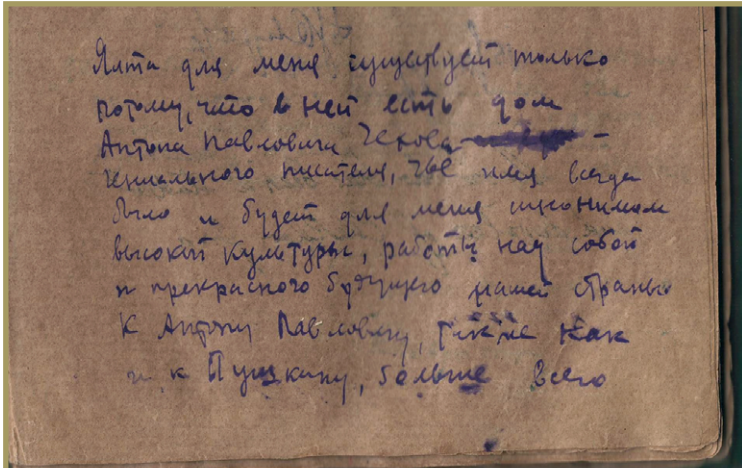 Ялта для меня существует только
потому, что в ней есть дом
Антона Павловича Чехова –
гениального писателя, чьё имя всегда
было и будет для меня синонимом
высокой культуры, работы над собой
и прекрасного будущего нашей страны
К Антону Павловичу, так же как
и к Пушкину, больше всего